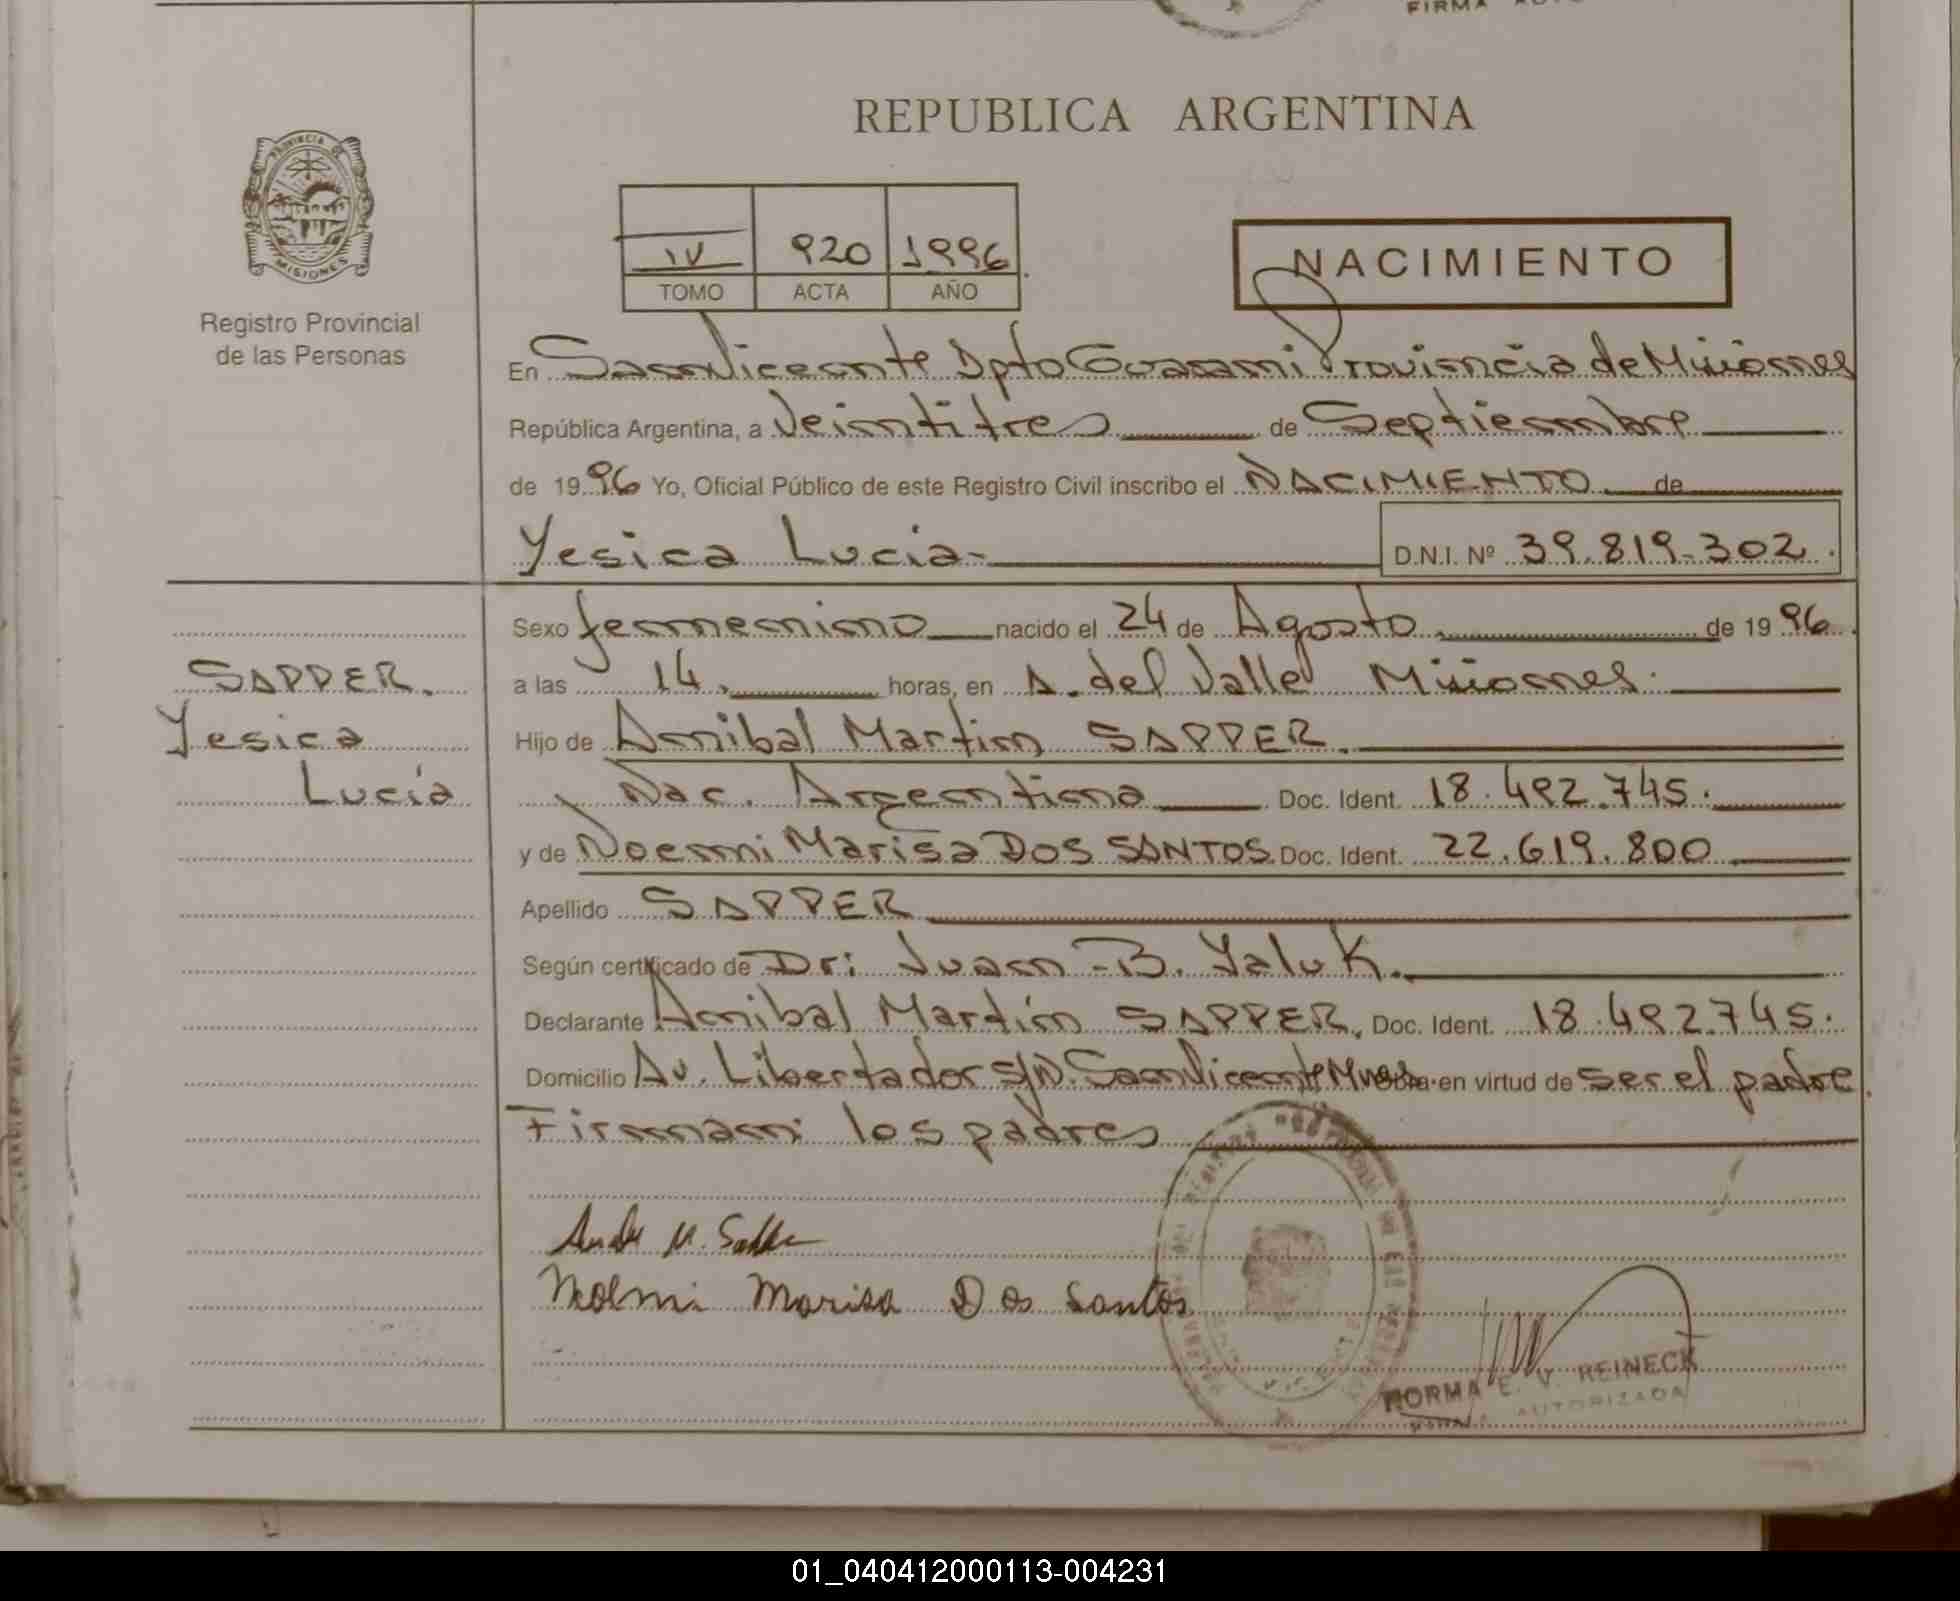 FIRMA
REPUBLICA ARGENTINA
PROVINCIA DE
MISIONES
Registro Provincial
de las Personas
IV 920 1996
TOMO ACTA AÑO
NACIMIENTO
En San Vicente Dpto Guarani Provincia de Misiones
República Argentina, a Veintitres de Septiembre
de 1996 Yo, Oficial Público de este Registro Civil inscribo el NACIMIENTO de
Yesica Lucia- D.N.I. Nº 39.819.302.
Sexo femenino nacido el 24 de Agosto de 1996.
SAPPER.
Yesica
Lucía
a las 14, horas, en A. del Valle Misiones.
Hijo de Anibal Martin SAPPER.
Nac. Argentina Doc. Ident. 18.492.745.
y de Noemi Marisa DOS SANTOS Doc. Ident. 22.619.800
Apellido SAPPER
Según certificado de Dr: Juan B. Yaluk.
Declarante Anibal Martín SAPPER. Doc. Ident. 18.492.745.
Domicilio Av. Libertador S/N. San Vicente Mnes Obra en virtud de ser el padre
Firman los padres
Noemi Marisa Dos Santos
NORMA E. V. REINECK
AUTORIZADA
01_040412000113-004231